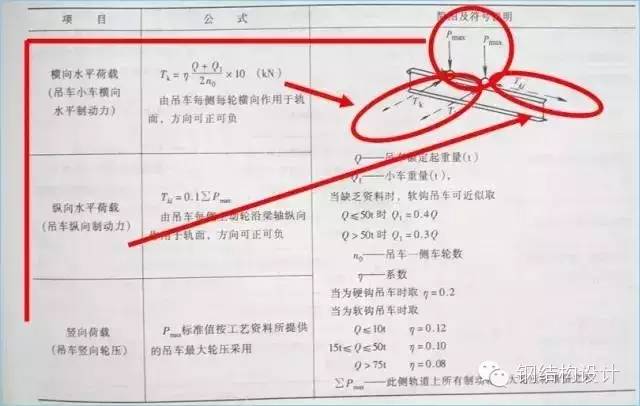 项 目 公 式 简图及符号说明
横向水平荷载
(吊车小车横向
水平制动力)
T_k = η (Q + Q_1)/(2n_0) ×10 (kN)
由吊车每侧每轮横向作用于轨
面，方向可正可负
P_max P_max
T_k T T_kl
Q——吊车额定起重量(t)
Q_1——小车重量(t),
当缺乏资料时，软钩吊车可近似取
Q≤50t 时 Q_1=0.4Q
Q>50t 时 Q_1=0.3Q
n_0——吊车一侧车轮数
η——系数
当为硬钩吊车时取 η=0.2
当为软钩吊车时取
Q≤10t η=0.12
15t≤Q≤50t η=0.10
Q>75t η=0.08
∑P_max——此侧轨道上所有制动轮最大
纵向水平荷载
(吊车纵向制动力)
T_kl = 0.1∑P_max
由吊车每侧 动轮沿梁轴纵向
用于轨面、方向可正可负
竖向荷载
(吊车竖向轮压)
P_max标准值按工艺资料所提供
的吊车最大轮压采用
钢结构设计